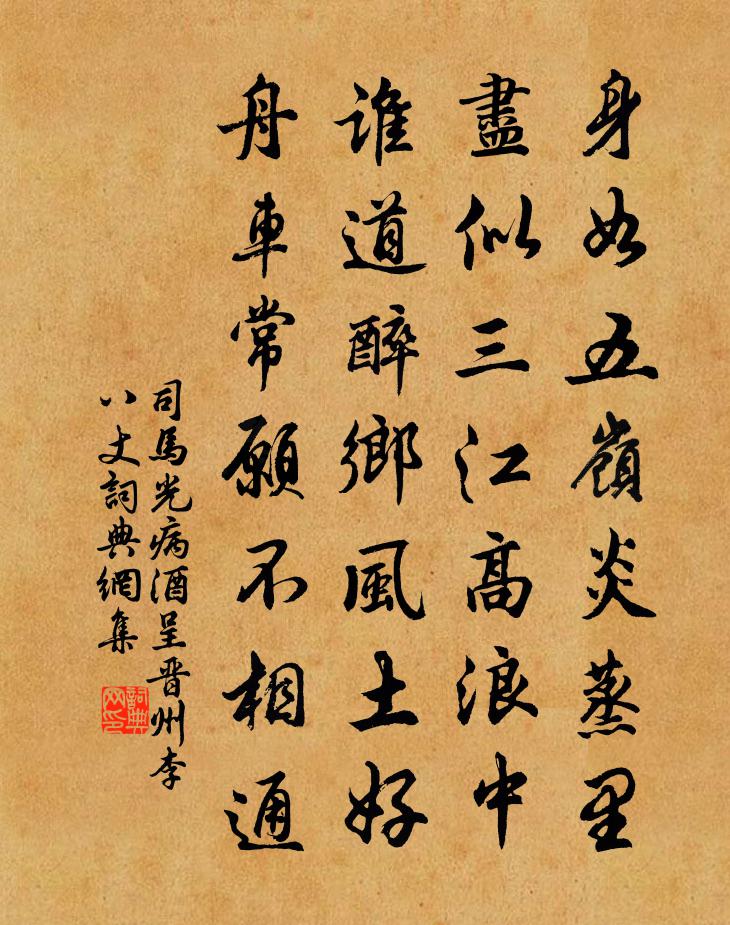 身如五嶺炎蒸里
盡似三江高浪中
誰道醉鄉風土好
舟車常願不相通
司馬光病酒呈晉州李
八丈詞典網集
詞典网印